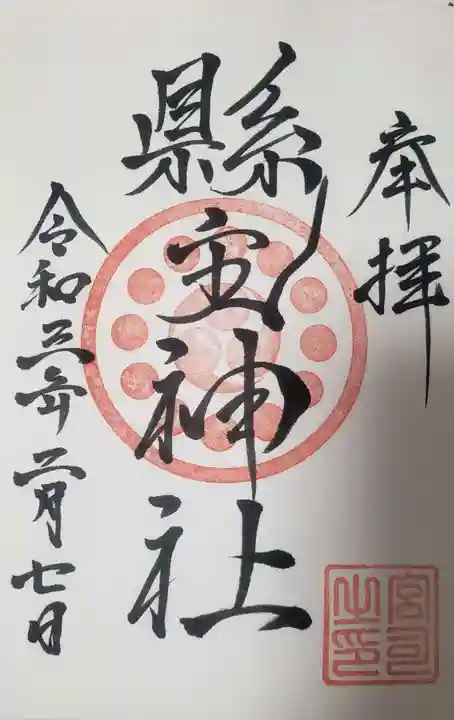 奉拝
縣主神社
令和三年二月七日
宮司之印